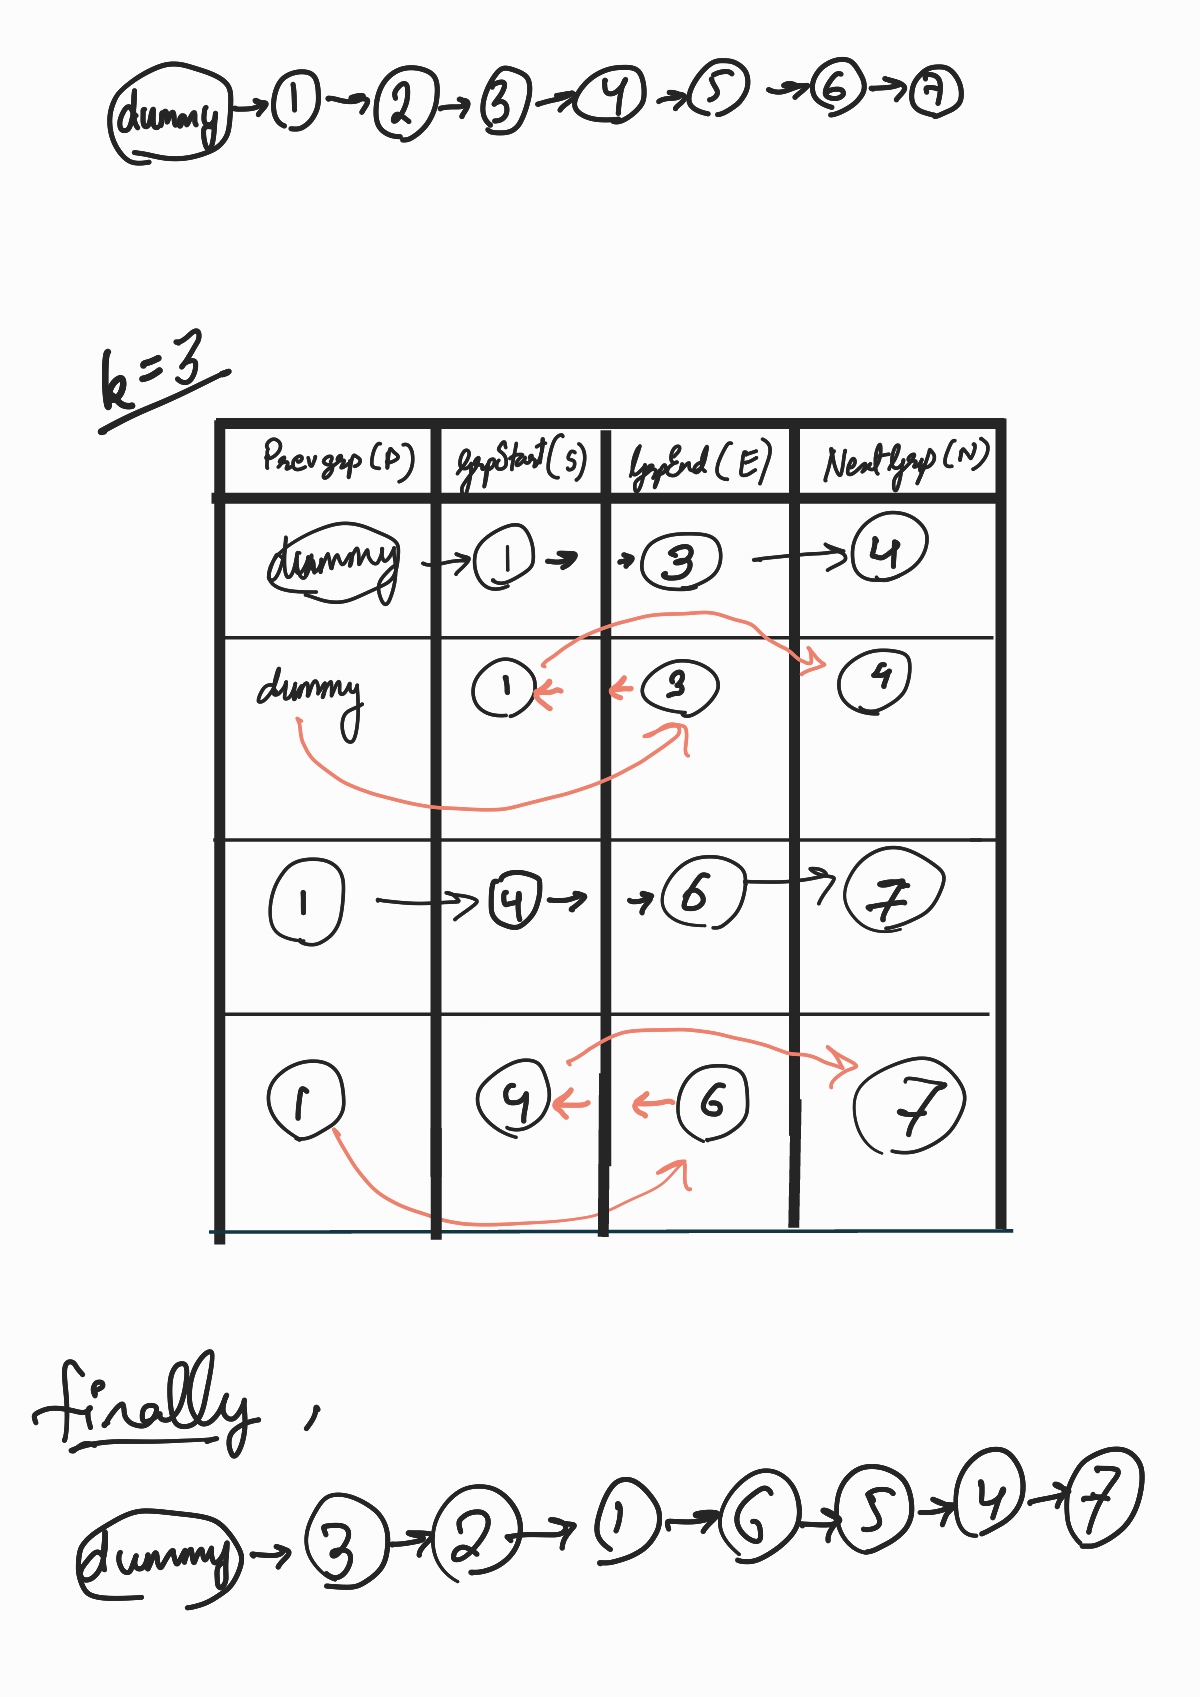 dummy → 1 → 2 → 3 → 4 → 5 → 6 → 7
k = 3
Prevgrp (P) GrpStart (S) GrpEnd (E) NextGrp (N)
dummy → 1 → → 3 → 4
dummy 1 ← ← 3 4
1 → 4 → → 6 → 7
1 4 ← ← 6 7
finally ,
dummy → 3 → 2 → 1 → 6 → 5 → 4 → 7